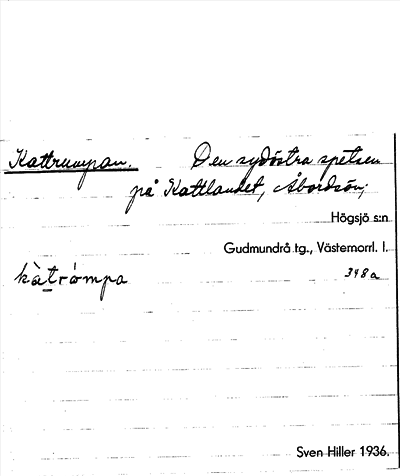 Kattrumpan. Den sydöstra spetsen
på Kattlandet, Åbordsön,
Högsjö s:n
Gudmundrå tg., Västernorrl. l.
kàtrómpa 348a
Sven Hiller 1936.